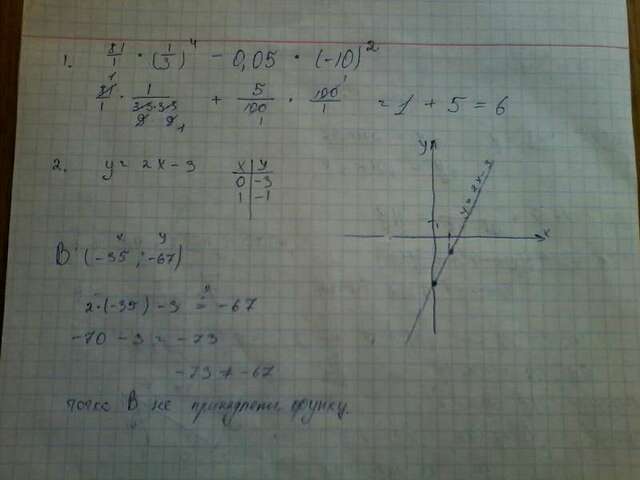 1. 81/1 · (1/3)^4 - 0,05 · (-10)^2
81/1 · 1/(3·3·3·3) + 5/100 · 100/1 = 1 + 5 = 6
2. y = 2x - 3
x | y
0 | -3
1 | -1
y
x
y = 2x - 3
x y
B (-35 ; -67)
2·(-35) - 3 = -67
-70 - 3 = -73
-73 ≠ -67
точка B не